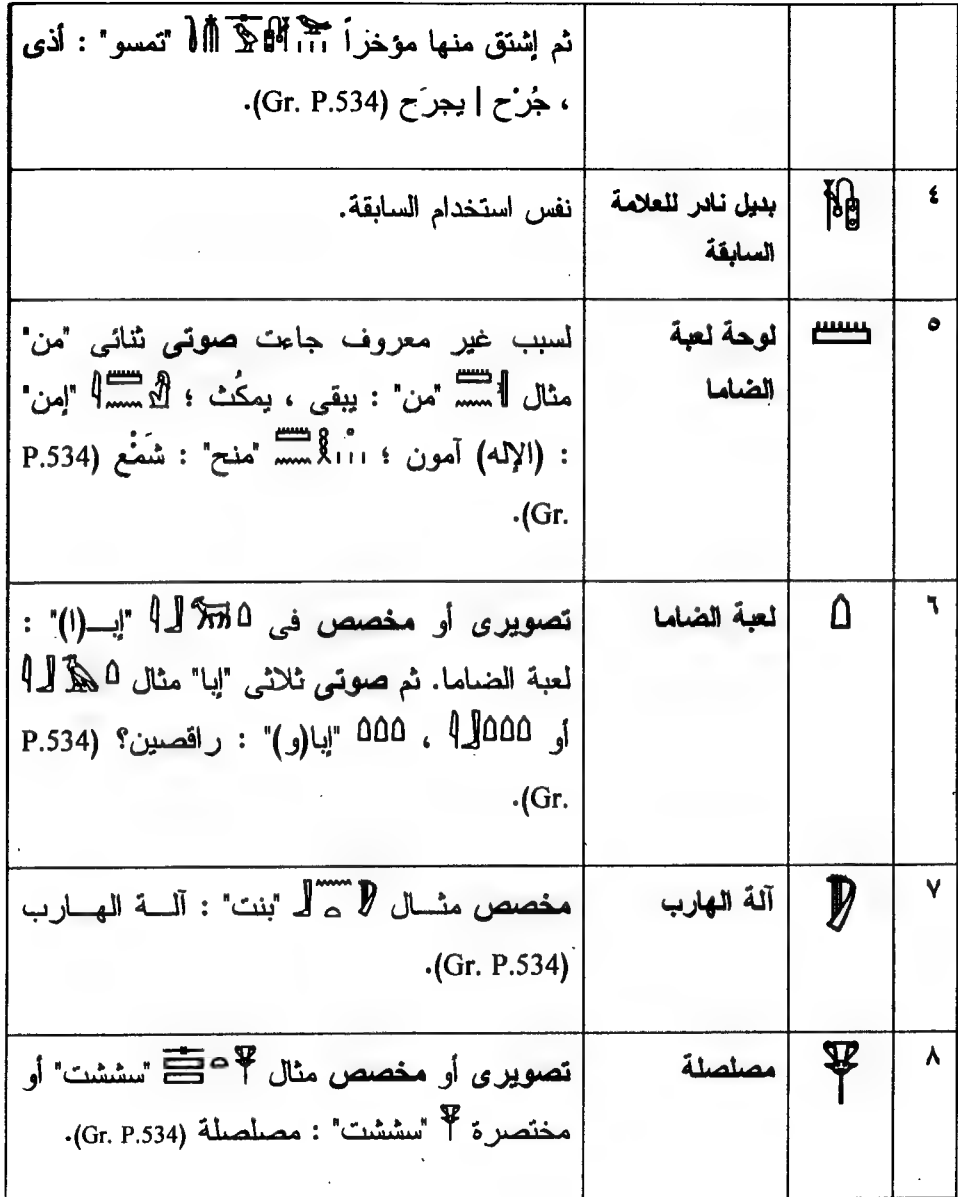 ثم إشتق منها مؤخزاً "تمسو" : أذى
، جُرْح | يجرَح (Gr. P.534).
٤ بديل نادر للعلامة السابقة نفس استخدام السابقة.
٥ لوحة لعبة الضاما لسبب غير معروف جاءت صوتى ثنائى "من"
مثال "من" : يبقى ، يمكُث ؛ "إمن"
: (الإله) آمون ؛ "منح" : شَمْع (P.534
Gr.).
٦ لعبة الضاما تصويرى أو مخصص فى "إبـ(ا)" :
لعبة الضاما. ثم صوتى ثلاثى "إبا" مثال
أو ، "إبا(و)" : راقصين؟ (P.534
Gr.).
٧ آلة الهارب مخصص مثال "بنت" : آلة الهارب
(Gr. P.534).
٨ مصلصلة تصويرى أو مخصص مثال "سششت" أو
مختصرة "سششت" : مصلصلة (Gr. P.534).